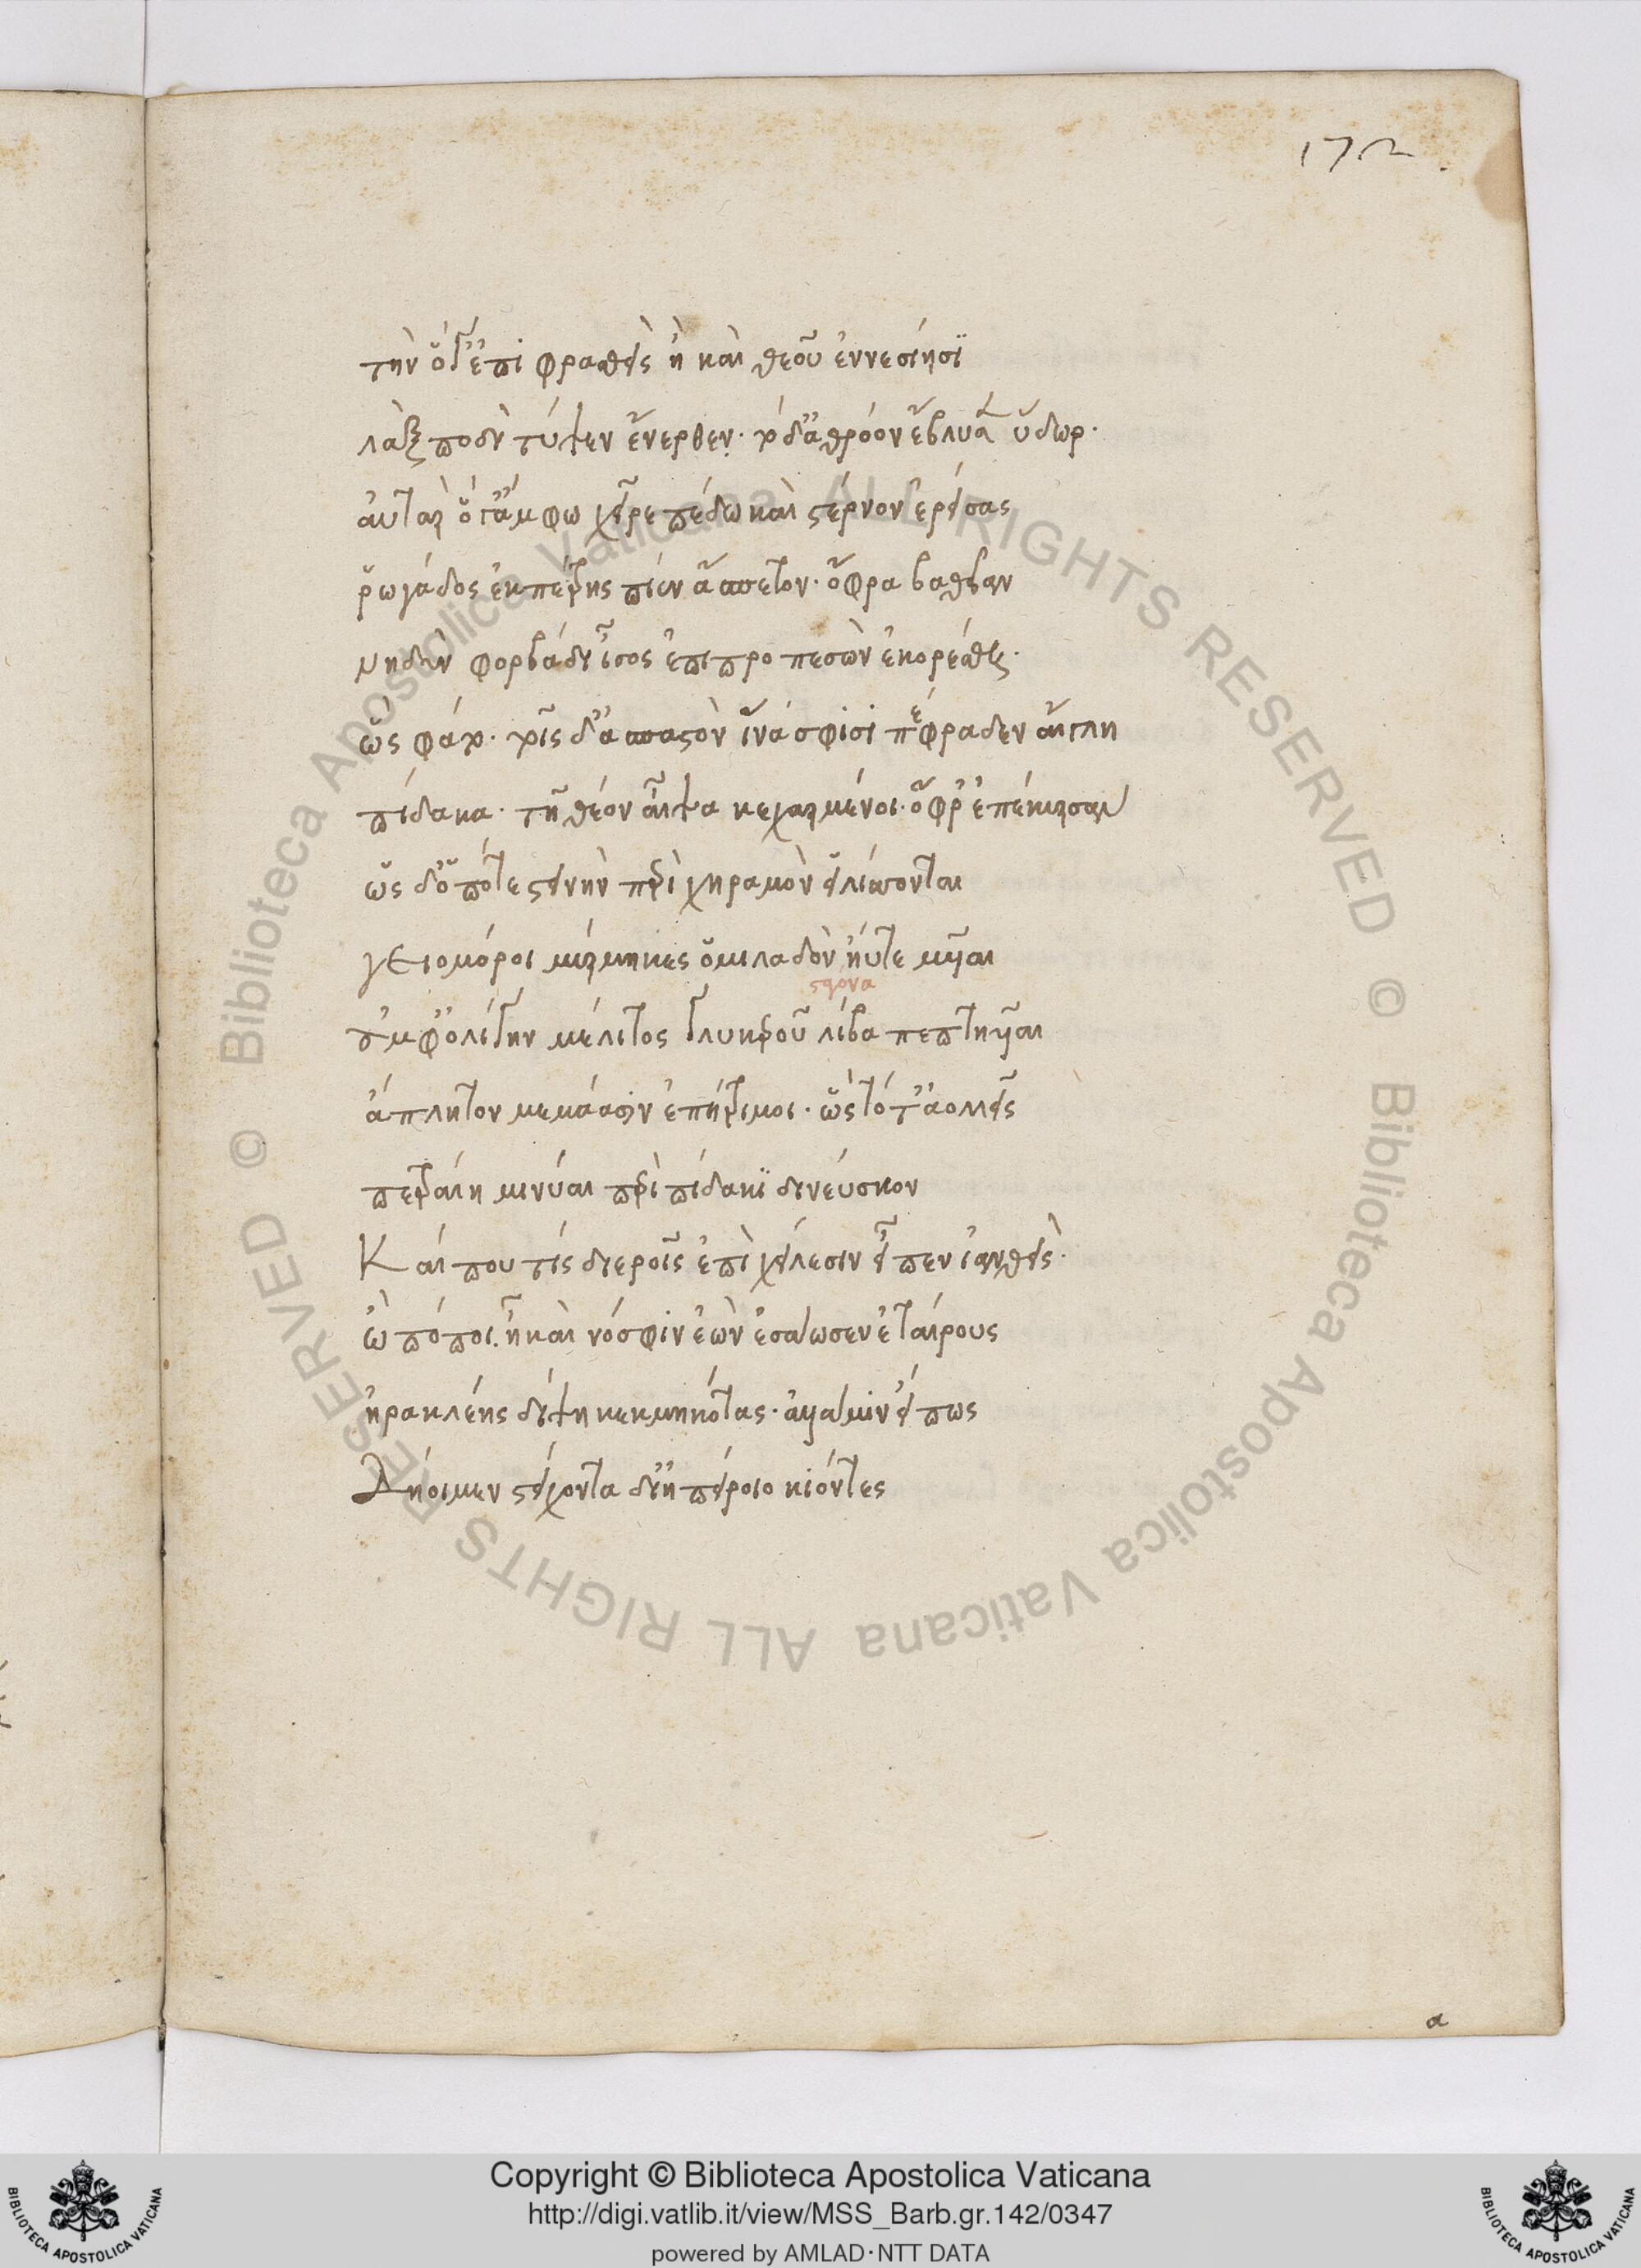 172.
τὴν ὅγ' ἐπιφρασθεὶς ἢ καὶ θεοῦ ἐννεσίῃσϊ
λὰξ ποδὶ τύψεν ἔνερθεν· τὸ δ' ἀθρόον ἔβλυσεν ὕδωρ·
αὐτὰρ ὅτ' ἄμφω χεῖρε πέδω καὶ στέρνον ἐρείσας
ῥωγάδος ἐκ πέτρης πίεν ἄσπετον· ὄφρα βαθεῖαν
νηδὺν φορβάδι ἶσος ἐπιπροπεσὼν ἐκορέσθη·
ὣς φάτο· τοῖς δ' ἀσπαστὸν ἵνά σφισι πέφραδεν αἴγλη
πίδακα· τῇ θέον αἶψα κεχαρμένοι· ὄφρ' ἐπέκυρσαν
ὡς δ' ὁπότε στεινὴν περὶ χηραμὸν εἱλίσσονται
γειομόροι μύρμηκες ὁμιλαδὸν ἠύτε μυῖαι
ἀμφ' ὀλίγην μέλιτος γλυκεροῦ λίβα πεπτηυῖαι
στονα
ἄπλητον μεμάασιν ἐπήτριμοι· ὣς τότ' ἀολλεῖς
πετραίη μινύαι περὶ πίδακϊ δινεύσκον
Καί που τίς διεροῖς ἐπὶ χείλεσιν εἶπεν ἰανθεὶς·
ὢ πόποι. ἦ καὶ νόσφιν ἐὼν ἐσάωσεν ἑταίρους
ἡρακλέης δίψῃ κεκμηκότας· ἀλλά μιν εἴ πως
Δήοιμεν στείχοντα δι' ἠπείροιο κιόντες
α
Copyright © Biblioteca Apostolica Vaticana
http://digi.vatlib.it/view/MSS_Barb.gr.142/0347
powered by AMLAD·NTT DATA
BIBLIOTECA APOSTOLICA VATICANA
BIBLIOTECA APOSTOLICA VATICANA
© Biblioteca Apostolica Vaticana ALL RIGHTS RESERVED
© Biblioteca Apostolica Vaticana ALL RIGHTS RESERVED